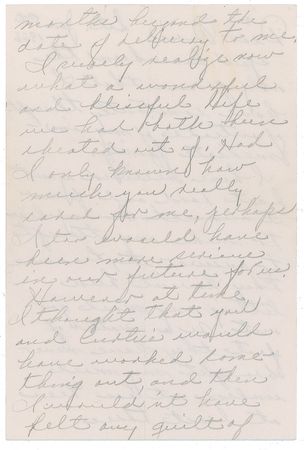 months beyond the
date of delivery to me.
I surely realize now
what a wonderful
and blissful life
we had both been
cheated out of. Had
I only known how
much you really
cared for me, perhaps
I too would have
been more serious
in our future for us.
However at time
I thought that you
and Curtis would
have worked some
thing out and then
I would'nt have
felt any guilt of